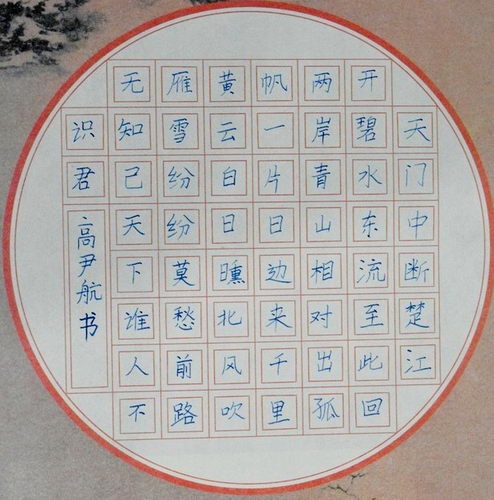 天门中断楚江
开碧水东流至此回
两岸青山相对出孤
帆一片日边来千里
黄云白日曛北风吹
雁雪纷纷莫愁前路
无知己天下谁人不
识君
高尹航书